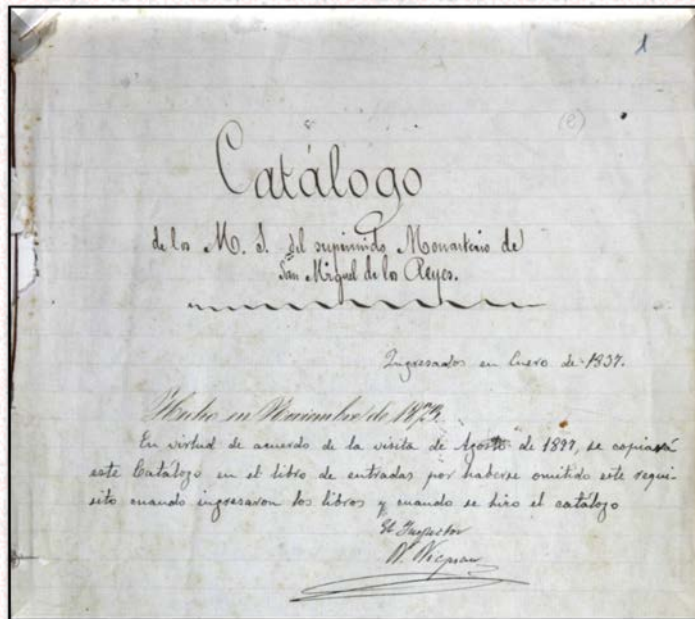 1
(e)
Catálogo
de los M. S. del suprimido Monasterio de
San Miguel de los Reyes.
Ingresados en Enero de 1837.
Hecho en Noviembre de 1873.
En virtud de acuerdo de la visita de Agosto de 1899, se copiará
este Catálogo en el libro de entradas por haberse omitido este requi-
sito cuando ingresaron los libros y cuando se hizo el catálogo
El Inspector